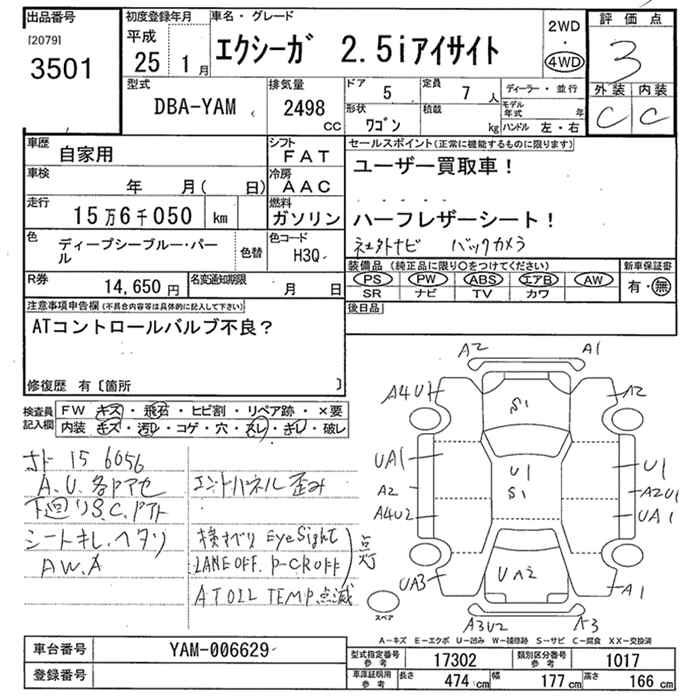 出品番号
[2079]
3501
初度登録年月
平成
25年 1月
車名・グレード
エクシーガ 2.5iアイサイト
2WD
・
4WD
評価点
3
外装 内装
C C
型式
DBA-YAM
排気量
2498
CC
ドア 5
定員 7人
形状 ワゴン
積載 kg
ディーラー・並行
モデル年式 年
ハンドル 左・右
車歴 自家用
シフト FAT
車検 年 月( 日)
冷房 AAC
走行 15万6千050 km
燃料 ガソリン
色 ディープシーブルー・パール
色替
色コード H3Q
R券 14,650円
名変通知期限 月 日
セールスポイント(正常に機能するものに限ります)
ユーザー買取車!
ハーフレザーシート!
社外ナビ バックカメラ
装備品 (純正品に限り○をつけてください)
PS PW ABS エアB AW
SR ナビ TV カワ
新車保証書
有・無
後日品
注意事項申告欄(不具合内容等は具体的に記入して下さい)
ATコントロールバルブ不良?
修復歴 有〔箇所 〕
検査員記入欄
FW キズ・飛石・ヒビ割・リペア跡・×要
内装 キズ・汚レ・コゲ・穴・スレ・キレ・破レ
15 6056
A.U.各Pアセ
下回りS.C.Pアト
シートキレ.ヘタリ
AW.A
エンドパネル歪み
横すべり EyeSight
LANEOFF. P-CROFF
点灯
AT OIL TEMP点滅
A2 A1
A4U1 S1 A2
UA1 U1 U1
A2 S1 A2U1
A4U2 UA1
UA3 UA2 A1
スペア
A3U2 A3
A-キズ E-エクボ U-凹み W-補修跡 S-サビ C-腐食 XX-交換済
車台番号 YAM-006629
登録番号
型式指定番号 参考 17302
類別区分番号 参考 1017
車庫証明用 参考
長さ 474cm
幅 177cm
高さ 166cm